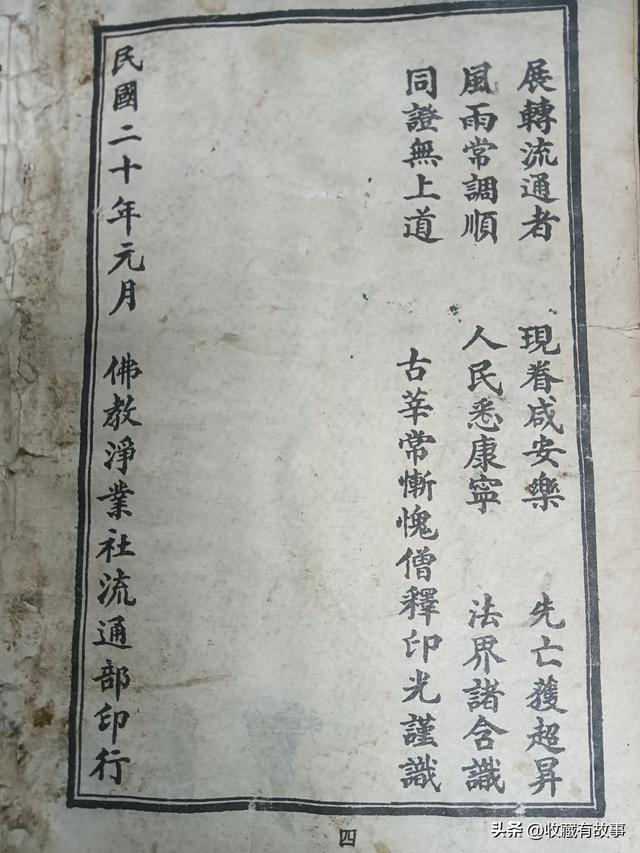 展轉流通者 現眷咸安樂 先亡獲超昇
風雨常調順 人民悉康寧 法界諸含識
同證無上道 古莘常慚愧僧釋印光謹識
民國二十年元月 佛教淨業社流通部印行
四
头条 @收藏有故事